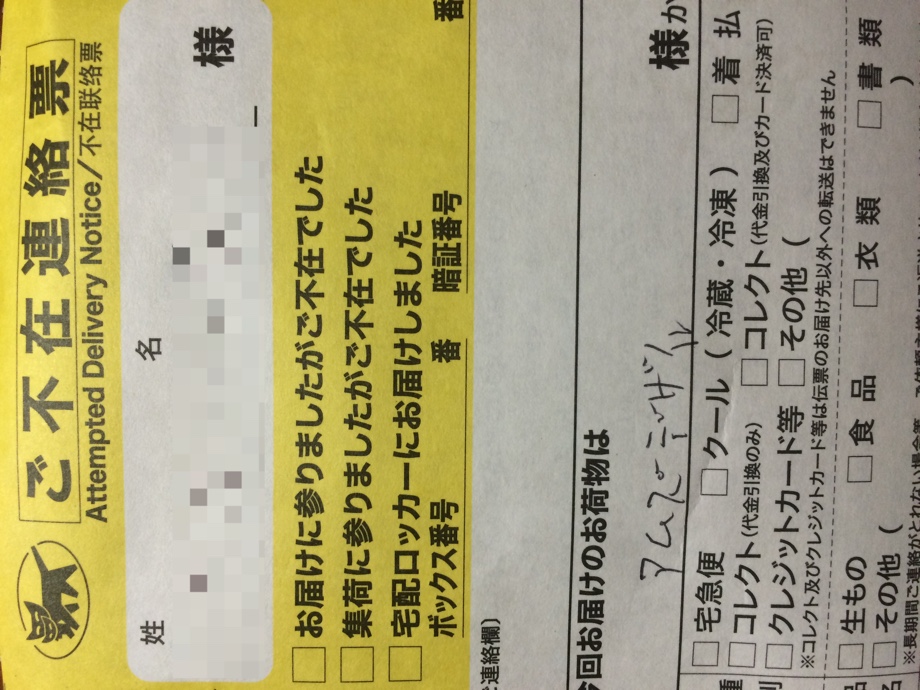 ご不在連絡票
Attempted Delivery Notice/不在联络票
姓 名
様
お届けに参りましたがご不在でした
集荷に参りましたがご不在でした
宅配ロッカーにお届けしました
ボックス番号 番 暗証番号 番
連絡欄)
今回お届けのお荷物は
様か
□宅急便 □クール(冷蔵・冷凍) □着払
□コレクト(代金引換のみ) □コレクト(代金引換及びカード決済可)
□クレジットカード等 □その他(
※コレクト及びクレジットカード等は伝票のお届け先以外への転送はできません
□生もの □食品 □衣類 □書類
□その他( )